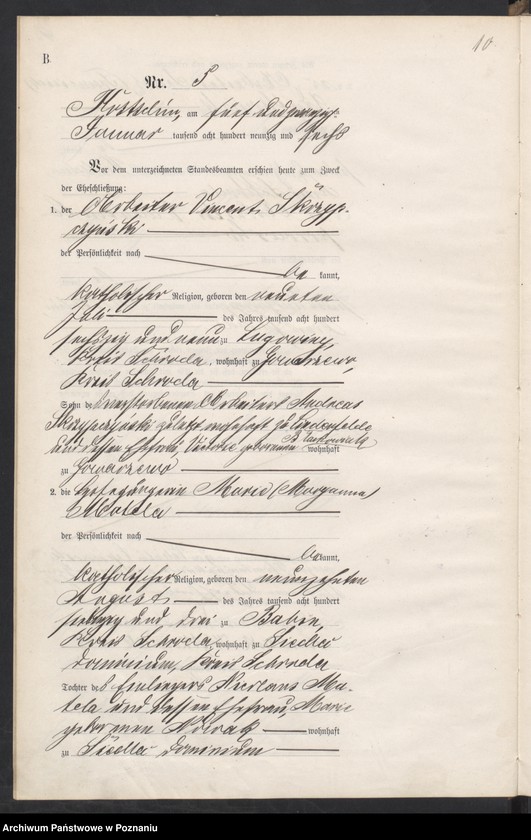 10.
B.
Nr. 5
Kostschin, am fünf und zwanzig
Januar tausend acht hundert neunzig und sechs
Vor dem unterzeichneten Standesbeamten erschien heute zum Zweck
der Eheschließung:
1. der Arbeiter Vincent Skrzyp-
czyński
der Persönlichkeit nach
be kannt,
katholischer Religion, geboren den neunten
Juli des Jahres tausend acht hundert
sechszig und neun zu Lugowiny
Kreis Schroda, wohnhaft zu
Kreis Schroda
Sohn des verstorbenen Arbeiters Andreas
Skrzypczyński zuletzt wohnhaft zu Lindenfelde
und dessen Ehefrau, Victorie geborenen wohnhaft
zu
2. die Marie (Maryanna)
Matela
der Persönlichkeit nach
be kannt,
katholischer Religion, geboren den neunzehnten
August des Jahres tausend acht hundert
siebzig und drei zu Babin,
Kreis Schroda, wohnhaft zu Siedlec
Dominium, Kreis Schroda
Tochter des Einliegers Nicolaus Ma-
tela und dessen Ehefrau, Marie
geborenen Nowak wohnhaft
zu Siedlec Dominium
Archiwum Państwowe w Poznaniu